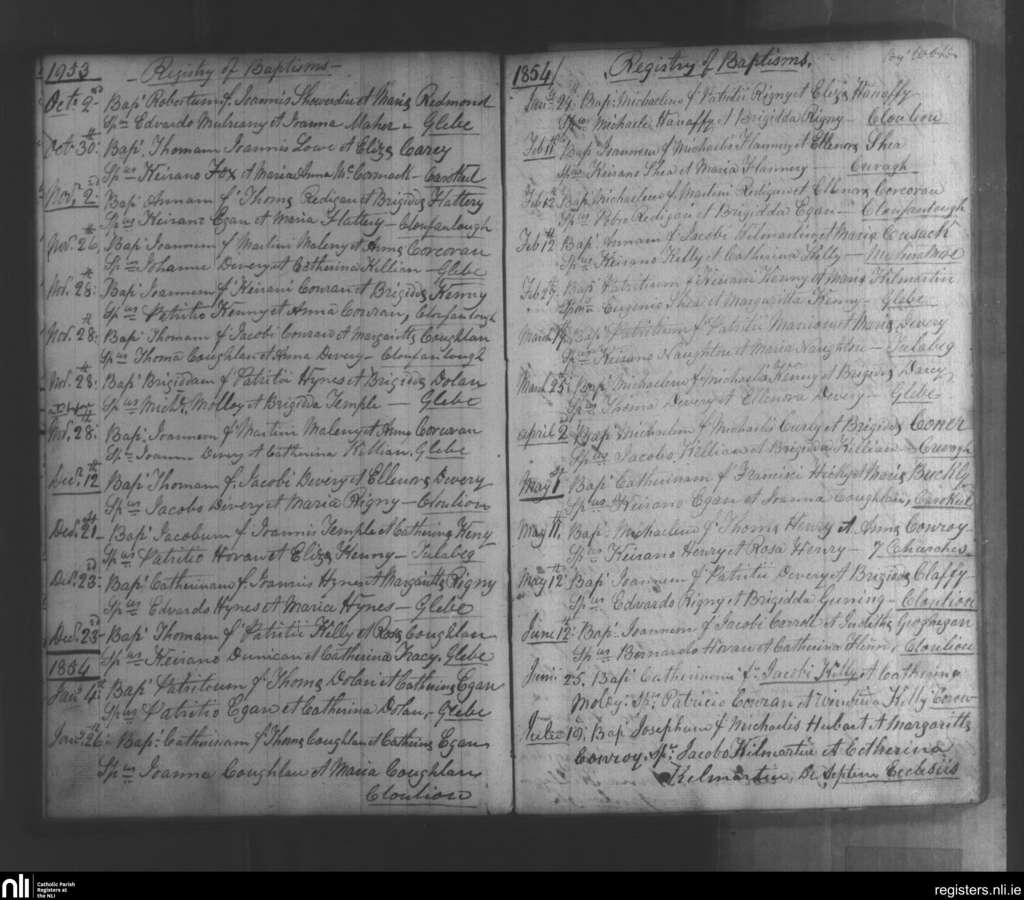 1953 - Registry of Baptisms -
Oct. 2nd Bap. Robertum f. Joannis Showerdin et Maria Redmond
Spus Edvardo Mulreany et Joanna Maher - Glebe
Oct. 30th Bap. Thomam Joannis Lowe et Eliza Carey
Spus Keirano Fox et Maria Anna McCormack - Carothul
Nov. 2d Bap. Annam f. Thoms Redigan et Brigids Flattery
Spus Keirano Egan et Maria Flattery - Clonfanlough
Nov. 26th Bap. Joannem f. Martini Maleny et Anns Corcoran
Spus Johanne Devery et Catherina Killian - Glebe
Nov. 28th Bap. Joannem f. Keirani Conran et Brigids Kenny
Spus Patritio Kenny et Anna Cowran, Clonfanlough
Nov. 28th Bap. Thomam f. Jacobi Conran et Margaritts Coughlan
Spus Thoma Coughlan et Anna Devery - Clonfanlough
Nov. 28th Bap. Brigiddam f. Patritii Hynes et Brigids Dolan
Spus Michl. Molloy et Brigidda Temple - Glebe
Nov. 28th Bap. Joannem f. Martini Maleny et Anns Corcoran
Sps Joanne Devery et Catherina Killian. Glebe
Decr. 12th Bap. Thomam f. Jacobi Devery et Ellenors Devery
Spus Jacobo Devery et Maria Rigny - Cloution
Decr. 21th - Bap. Jacobum f. Joannis Temple et Catherins Keny
Spus Patritio Horan et Eliza Kenny - Tulabeg
Decr. 23d Bap. Catherinam f. Joannis Hynes et Margaritts Rigny
Spus Edvardo Hynes et Maria Hynes - Glebe
Decr. 23d Bap. Thomam f. Patritii Kelly et Ross Coughlan
Spus Keirano Dunican et Catherina Tracy. Glebe
1854
Jany. 4th Bap. Patritium f. Thoms Dolan et Catherins Egan
Spus Patritio Egan et Catherina Dolan, - Glebe
Jany. 26th Bap. Catherinam f. Thoms Coughlan et Catherins Egan
Spus Joanna Coughlan et Maria Coughlan
Cloution
1854 Registry of Baptisms.
Jany. 24th Bap. Michaelem f. Patritii Rigny et Eliza Hanaffy
Spus Michaele Hanaffy et Brigidda Rigny - Cloution
Feb. 11th Bap. Joannem f. Michaelis Flannery et Ellenors Shea
Spus Keirano Shea et Maria Flannery Curragh
Feb. 12th Bap. Michaelem f. Martini Redigan et Ellenors Corcoran
Spus Petro Redigan et Brigidda Egan - Clonfanlough
Feb. 12th Bap. Annam f. Jacobi Kilmartin et Maria Cusack
Spus Keirano Kelly et Catharina Kelly
Feb. 29th Bap. Patritium f. Keirani Kenny et Maris Kilmartin
Spus Eugenio Shea et Margaritta Kenny - Glebe
March 19th Bap. Patritium f. Patritii et Maris Devery
Spus Keirano Naughton et Maria Naughton - Tulabeg
March 25th Bap. Michaelem f. Michaelis Kenny et Brigids Darcy
Spus Thoma Devery et Ellenora Devery - Glebe
April 2nd Bap. Michaelem f. Michaelis Curly et Brigids Coner
Spus Jacobo Killian et Brigidda Killian - Curragh
May 1st Bap. Catherinam f. Francisci Hicky et Maris Buckly
Spus Keirano Egan et Joanna Coughlan, Carokul
May 11th Bap. Michaelem f. Thoms Henry et Anns Conroy -
Spus Keirano Henry et Rosa Henry - 7 Churches
May 12th Bap. Joannem f. Patritii Devery et Brigids Claffy -
Spus Edvardo Rigny et Brigidda Guning - Cloution
June 12th Bap. Joannem f. Jacobi Carrol et Judiths Geoghegan
Spus Bernardo Horan et Catharina Flinn - Cloution
Juni: 25. Bap. Catherinam f. Jacobi Kelly et Catherina
Molloy. Sps. Patricio Cowran et Kelly
Julii 19th Bap. Josephum f. Michaelis Hubart et Margaritts
Conroy. Sps. Jacobo Kilmartin et Catherina
Kelmartin, De Septem Ecclesiis
nli Catholic Parish
Registers at
the NLI
registers.nli.ie